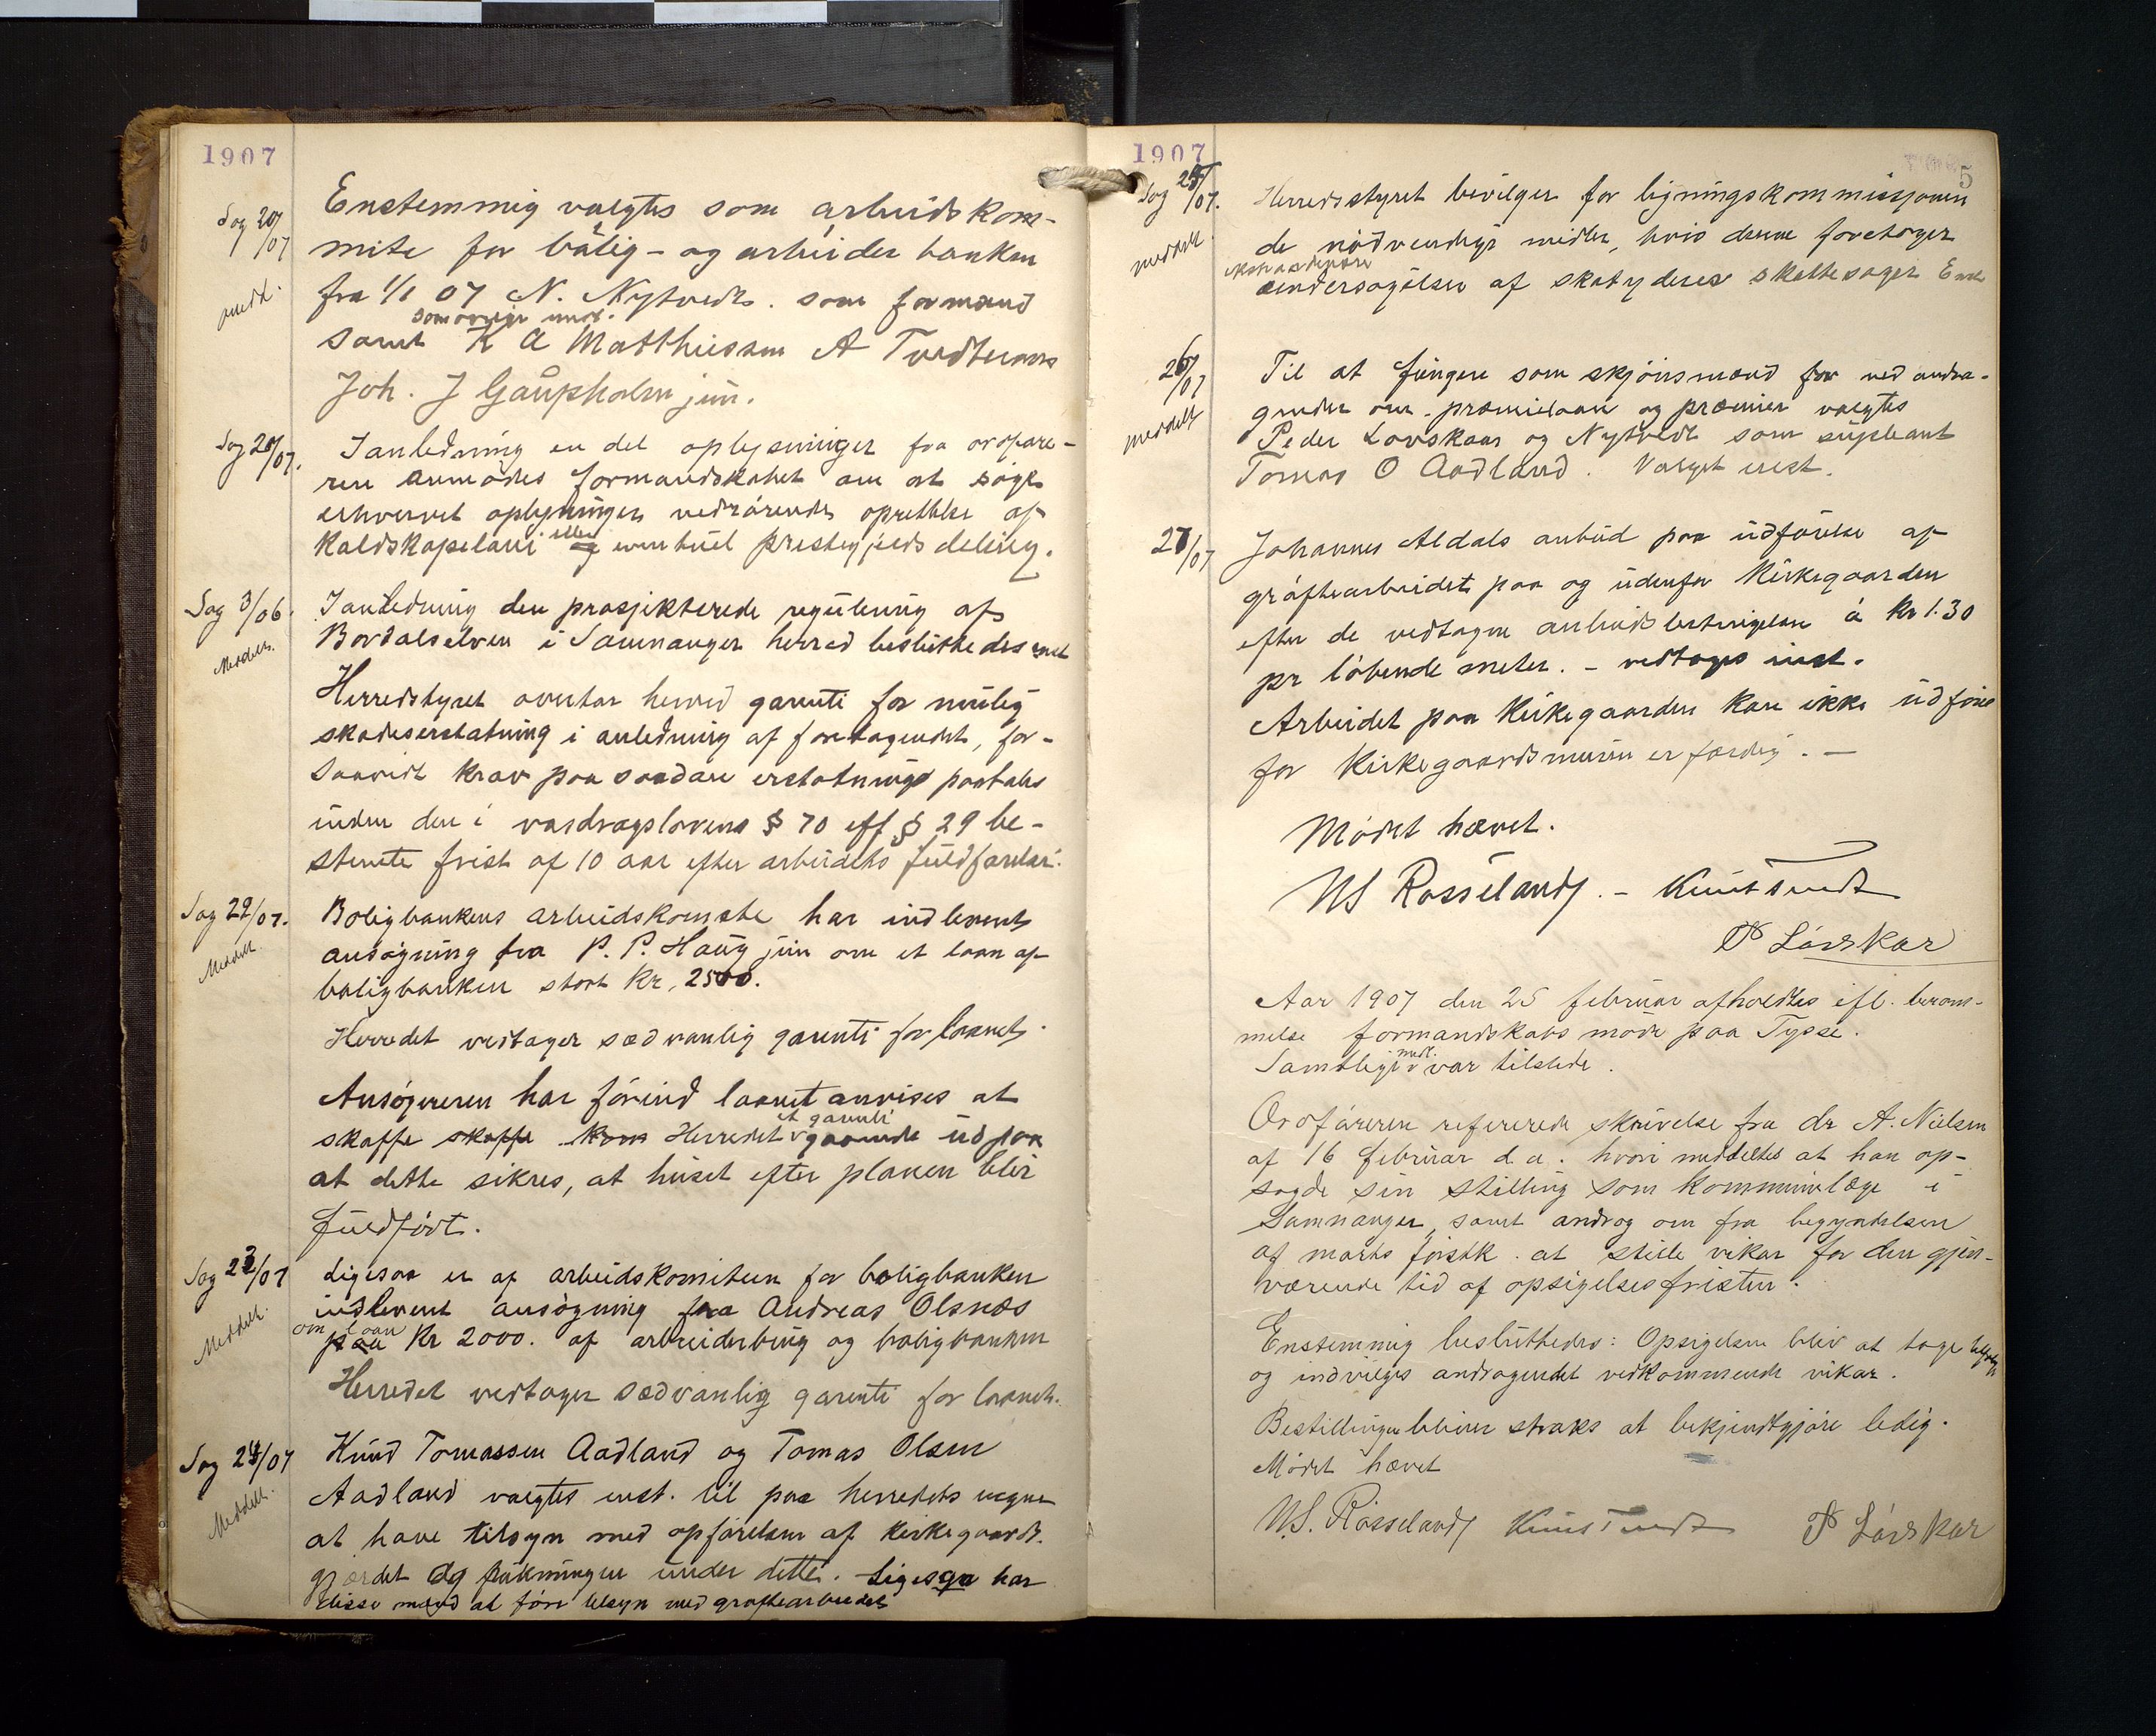 1907
Sag 20/07
medd.
Enstemmig valgtes som arbeidskom-
mite for bolig- og arbeider banken
fra 1/1 07 N. Nytvedt. som formand
som øvrige medl.
samt K A Matthiessen A Tvedteraas
Joh. J Gaupholm jun.
Sag 20/07.
I anledning en del oplysninger fra ordføre-
ren anmodes formandskabet om at søge
erhvervet oplysninger vedrørende oprettelse af
eller
Kaldskapelani og eventuel prestegjelds deling.
Sag 3/06.
Meddelt.
I anledning den prosjekterede regulering af
Bordalselven i Samnanger herred besluttedes enst
Herredstyret overtar herved garanti for mulig
skadeserstatning i anledning af foretagendet, for-
saavidt krav paa saadan erstatning paatales
inden den i vasdragslovens § 70 cff § 29 be-
stemte frist af 10 aar efter arbeidets fuldførelse.
Sag 22/07.
Meddelt.
Boligbankens arbeidskomite har indlevert
ansøgning fra P. P. Haug jun om et laan af
boligbanken stort kr. 2500.
Herredet vedtager sædvanlig garenti for laanet.
Ansøgeren har førind laanet anvises at
et garenti
skaffe skaffe Herredet gaaende ud paa
at dette sikres, at huset efter planen blir
fuldført.
Sag 23/07
Meddelt.
Ligesaa er af arbeidskomiteen for boligbanken
indlevert ansøgning fra Andreas Olsnes
om laan
paa Kr 2000. af arbeiderbrug og boligbanken
Herredet vedtager sædvanlig garenti for laanet.
Sag 24/07
Meddelt.
Knud Tomassen Aadland og Tomas Olsen
Aadland valgtes enst. til paa herredets vegne
at have tilsyn med opførelsen af kirkegaards-
gjerdet og pukningen under dette. Ligesaa har
disse mænd at føre tilsyn med grøftearbeidet
1907
5
Sag 25/07.
meddelt.
Herredsstyret bevilger for ligningskommissionen
de nødvendige midler, hvis denne foretager
ekstraordinære
undersøgelser af skatyderes skattesager Enst
26/07
meddelt
Til at fungere som skjønsmænd for ved andra-
gender om præmielaan og præmier valgtes
Peder Lovskaar og Nytvedt som supleant
Tomas O Aadland. Valget enst.
27/07
Johannes Aldals anbud paa udførelse af
grøftearbeidet paa og udenfor Kirkegaarden
efter de vedtagne anbudsbetingelser á kr 1.30
pr løbende meter. - vedtages enst.
Arbeidet paa Kirkegaarden kan ikke udføres
før Kirkegaardsmuren er færdig. -
Mødet hævet.
NS Røsseland. - Knut Tvedt
P Løvskar
Aar 1907 den 25 februar afholdtes ifl. beram-
melse formandskabs møde paa Tysse.
medl.
Samtlige var tilstede.
Ordføreren refererede skrivelse fra dr A. Nielsen
af 16 februar d.a. hvori meddeltes at han op-
sagde sin stilling som kommunelæge i
Samnanger, samt androg om fra begyndelsen
af marts førstk. at stille vikar for den gjen-
værende tid af opsigelsesfristen.
Enstemmig besluttedes: Opsigelsen blir at tage tilfølge
og indvilges andragendet vedkommende vikar.
Bestillingen bliver straks at bekjendtgjøre ledig.
Mødet hævet
NS. Røsseland Knut Tvedt P Løvskar